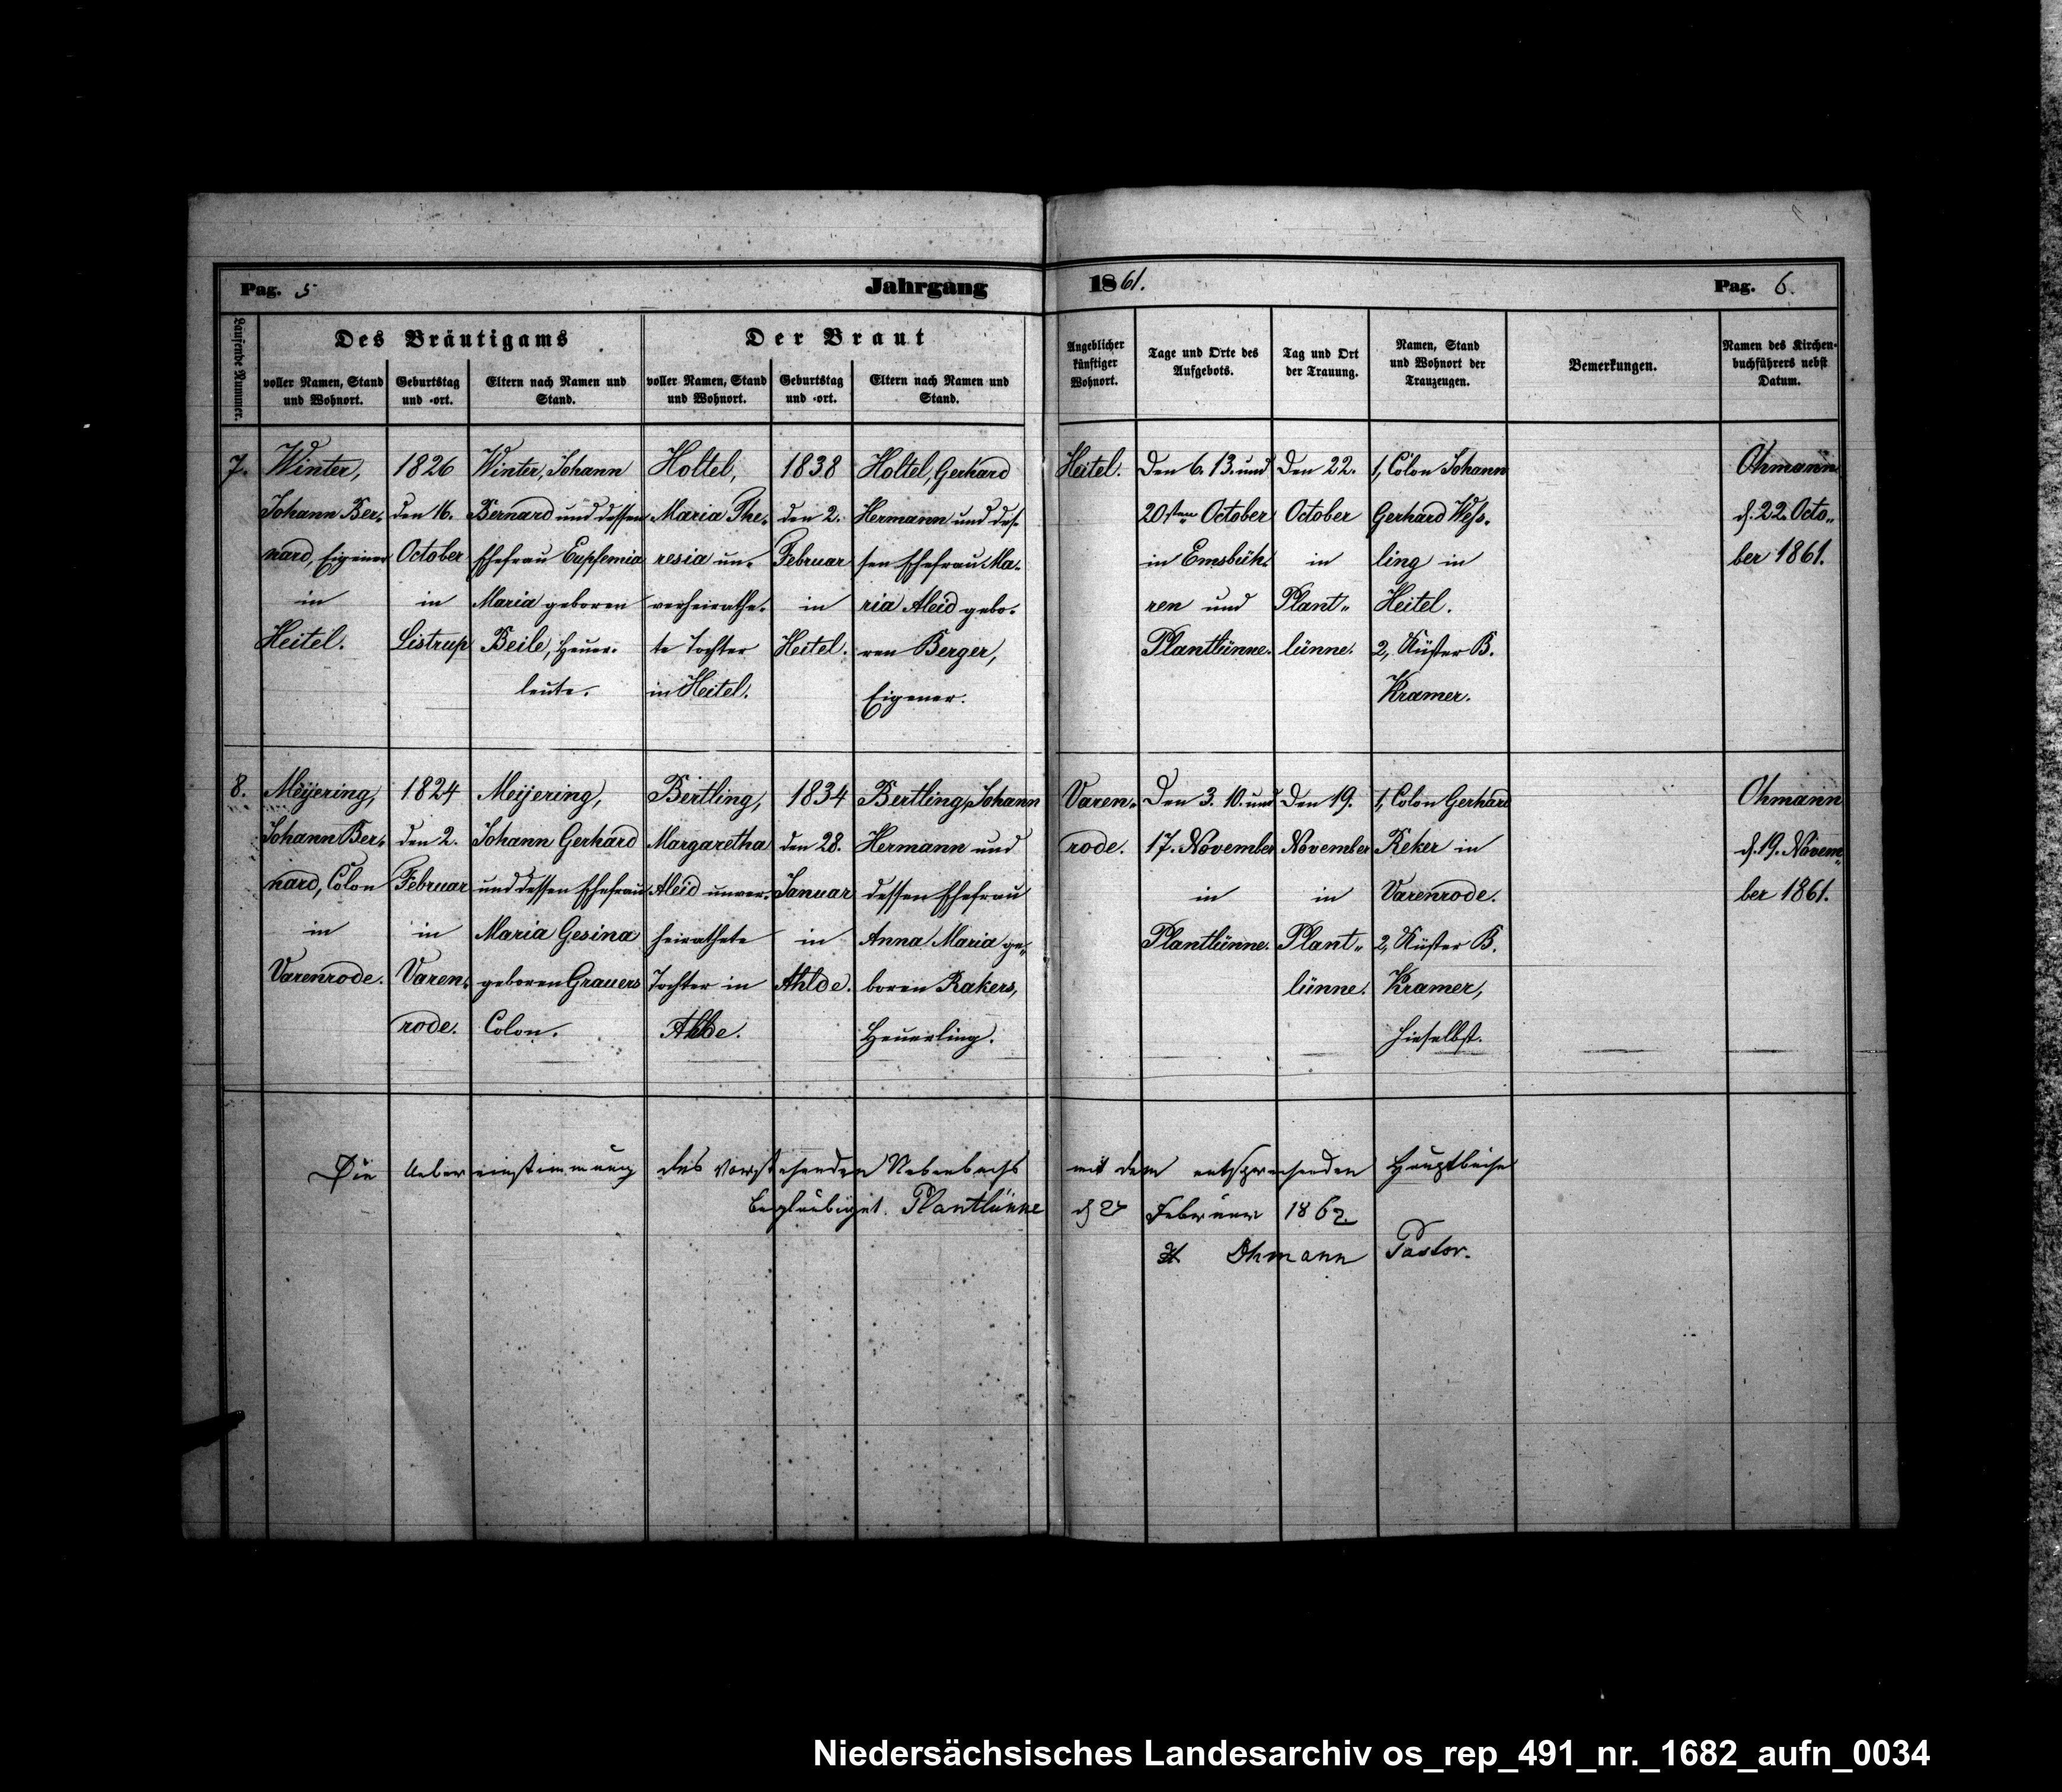 Pag. 5
Jahrgang
1861.
Pag. 6.
Laufende Nummer.
Des Bräutigams
voller Namen, Stand
und Wohnort.
Geburtstag
und -ort.
Eltern nach Namen und
Stand.
Der Braut
voller Namen, Stand
und Wohnort.
Geburtstag
und -ort.
Eltern nach Namen und
Stand.
Angeblicher
künftiger
Wohnort.
Tage und Orte des
Aufgebots.
Tag und Ort
der Trauung.
Namen, Stand
und Wohnort der
Trauzeugen.
Bemerkungen.
Namen des Kirchen-
buchführers nebst
Datum.
7.
Winter,
Johann Ber-
nard, Eigener
in
Heitel.
1826
den 16.
October
in
Listrup
Winter, Johann
Bernard und dessen
Ehefrau Eupfemia
Maria geboren
Beile, Heuer-
leute.
Holtel,
Maria The-
resia un-
verheirathe-
te Tochter
in Heitel.
1838
den 2.
Februar
in
Heitel.
Holtel, Gerhard
Hermann und des-
sen Ehefrau Ma-
ria Aleid gebo-
ren Berger,
Eigener.
Heitel.
Den 6. 13. und
20sten October
in Emsbüh-
ren und
Plantlünne.
Den 22.
October
in
Plant-
lünne.
1, Colon Johann
Gerhard Wess-
ling in
Heitel.
2, Küster B.
Kramer.
Ohmann
d. 22. Octo-
ber 1861.
8.
Meijering,
Johann Ber-
nard, Colon
in
Varenrode.
1824
den 2.
Februar
in
Varen-
rode.
Meijering,
Johann Gerhard
und dessen Ehefrau
Maria Gesina
geboren Grauers
Colon.
Bertling,
Margaretha
Aleid unver-
heirathete
Tochter in
Ahlde.
1834
den 28.
Januar
in
Ahlde.
Bertling, Johann
Hermann und
dessen Ehefrau
Anna Maria ge-
boren Rakers,
Heuerling.
Varen-
rode.
Den 3. 10. und
17. November
in
Plantlünne.
Den 19.
November
in
Plant-
lünne.
1, Colon Gerhard
Reker in
Varenrode.
2, Küster B.
Kramer,
hieselbst.
Ohmann
d. 19. Novem-
ber 1861.
Die Uebereinstimmung des vorstehenden Nebenbuchs mit dem entsprechenden Hauptbuche
beglaubiget. Plantlünne d Februar 1862
Ohmann Pastor.
Niedersächsisches Landesarchiv os_rep_491_nr._1682_aufn_0034